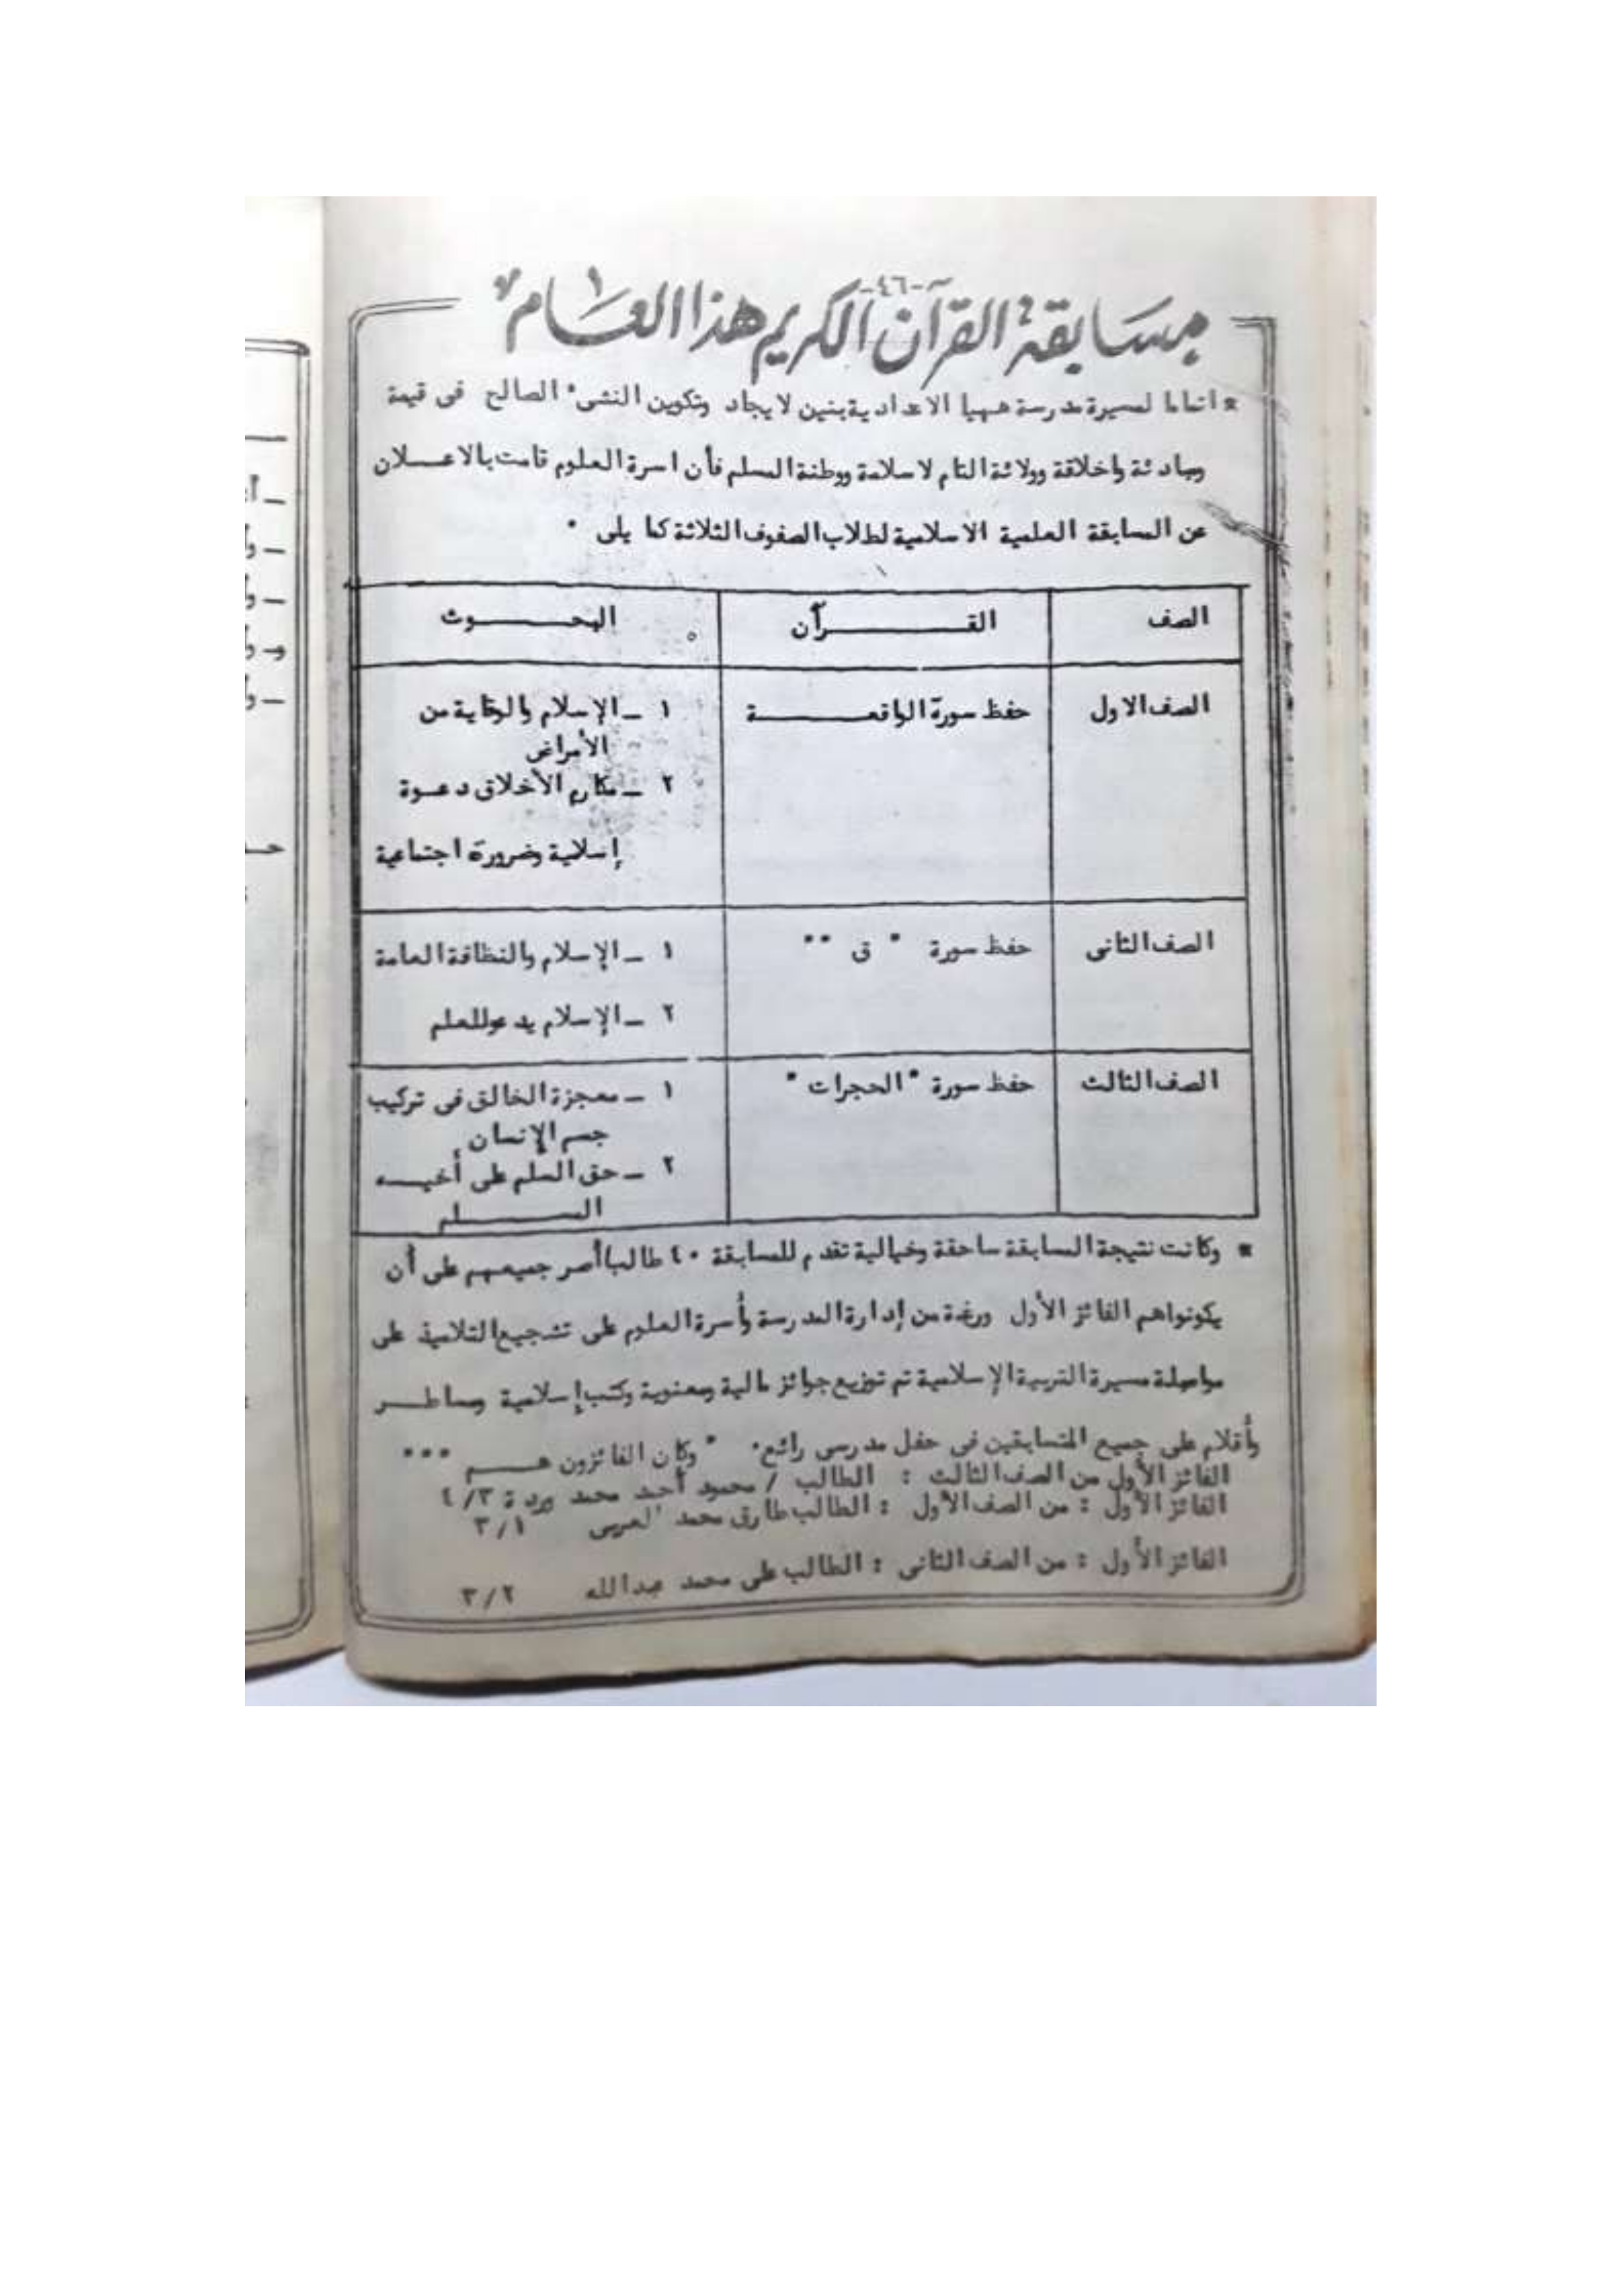 -٤٦-
مسابقة القرآن الكريم هذا العام
* اتماما لمسيرة مدرسة ههيا الاعدادية بنين لايجاد وتكوين النشىء الصالح فى قيمة
ومبادئة واخلاقة وولائة التام لاسلامة ووطنة المسلم فأن اسرة العلوم قامت بالاعـــلان
عن المسابقة العلمية الاسلامية لطلاب الصفوف الثلاثة كما يلى .
الصف القـــــــرآن البحـــــوث
الصف الاول حفظ سورة الواقعـــــة ١ ـ الإسلام والوقاية من
الأمراض
٢ ـ مكارم الأخلاق دعـوة
إسلامية وضرورة اجتماعية
الصف الثانى حفظ سورة " ق " ١ ـ الإسلام والنظافة العامة
٢ ـ الإسلام يدعو للعلم
الصف الثالث حفظ سورة "الحجرات " ١ ـ معجزة الخالق فى تركيب
جسم الإنسان
٢ ـ حق المسلم على أخيـــه
المســــــلم
* وكانت نتيجة المسابقة ساحقة وخيالية تقدم للمسابقة ٤٠ طالبا أصر جميعهم على أن
يكونوا هم الفائز الأول ورغبة من إدارة المدرسة وأسرة العلوم على تشجيع التلاميذ على
مواصلة مسيرة التربية الإسلامية تم توزيع جوائز مالية ومعنوية وكتب إسلامية ومساطـــر
وأقلام على جميع المتسابقين فى حفل مدرسى رائع . " وكان الفائزون هـــم ...
الفائز الأول من الصف الثالث : الطالب / محمود أحمد محمد بردة ٤/٣
الفائز الأول : من الصف الأول : الطالب طارق محمد العربى ٣/١
الفائز الأول : من الصف الثانى : الطالب على محمد عبدالله ٣/٢